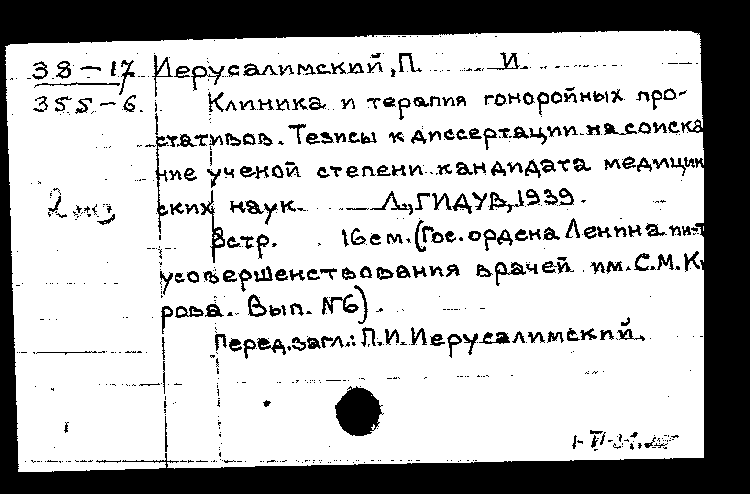 38-17
355-6.
2 экз
Иерусалимский, П. И.
Клиника и терапия гоноройных про-
стативов. Тезисы к диссертации на соиска
ние ученой степени кандидата медицин
ских наук. Л., ГИДУВ, 1939.
8стр. 16см. (Гос. ордена Ленина ин-т
усовершенствования врачей им. С.М. Ки
рова. Вып. №6).
Перед. загл.: П.И. Иерусалимский.